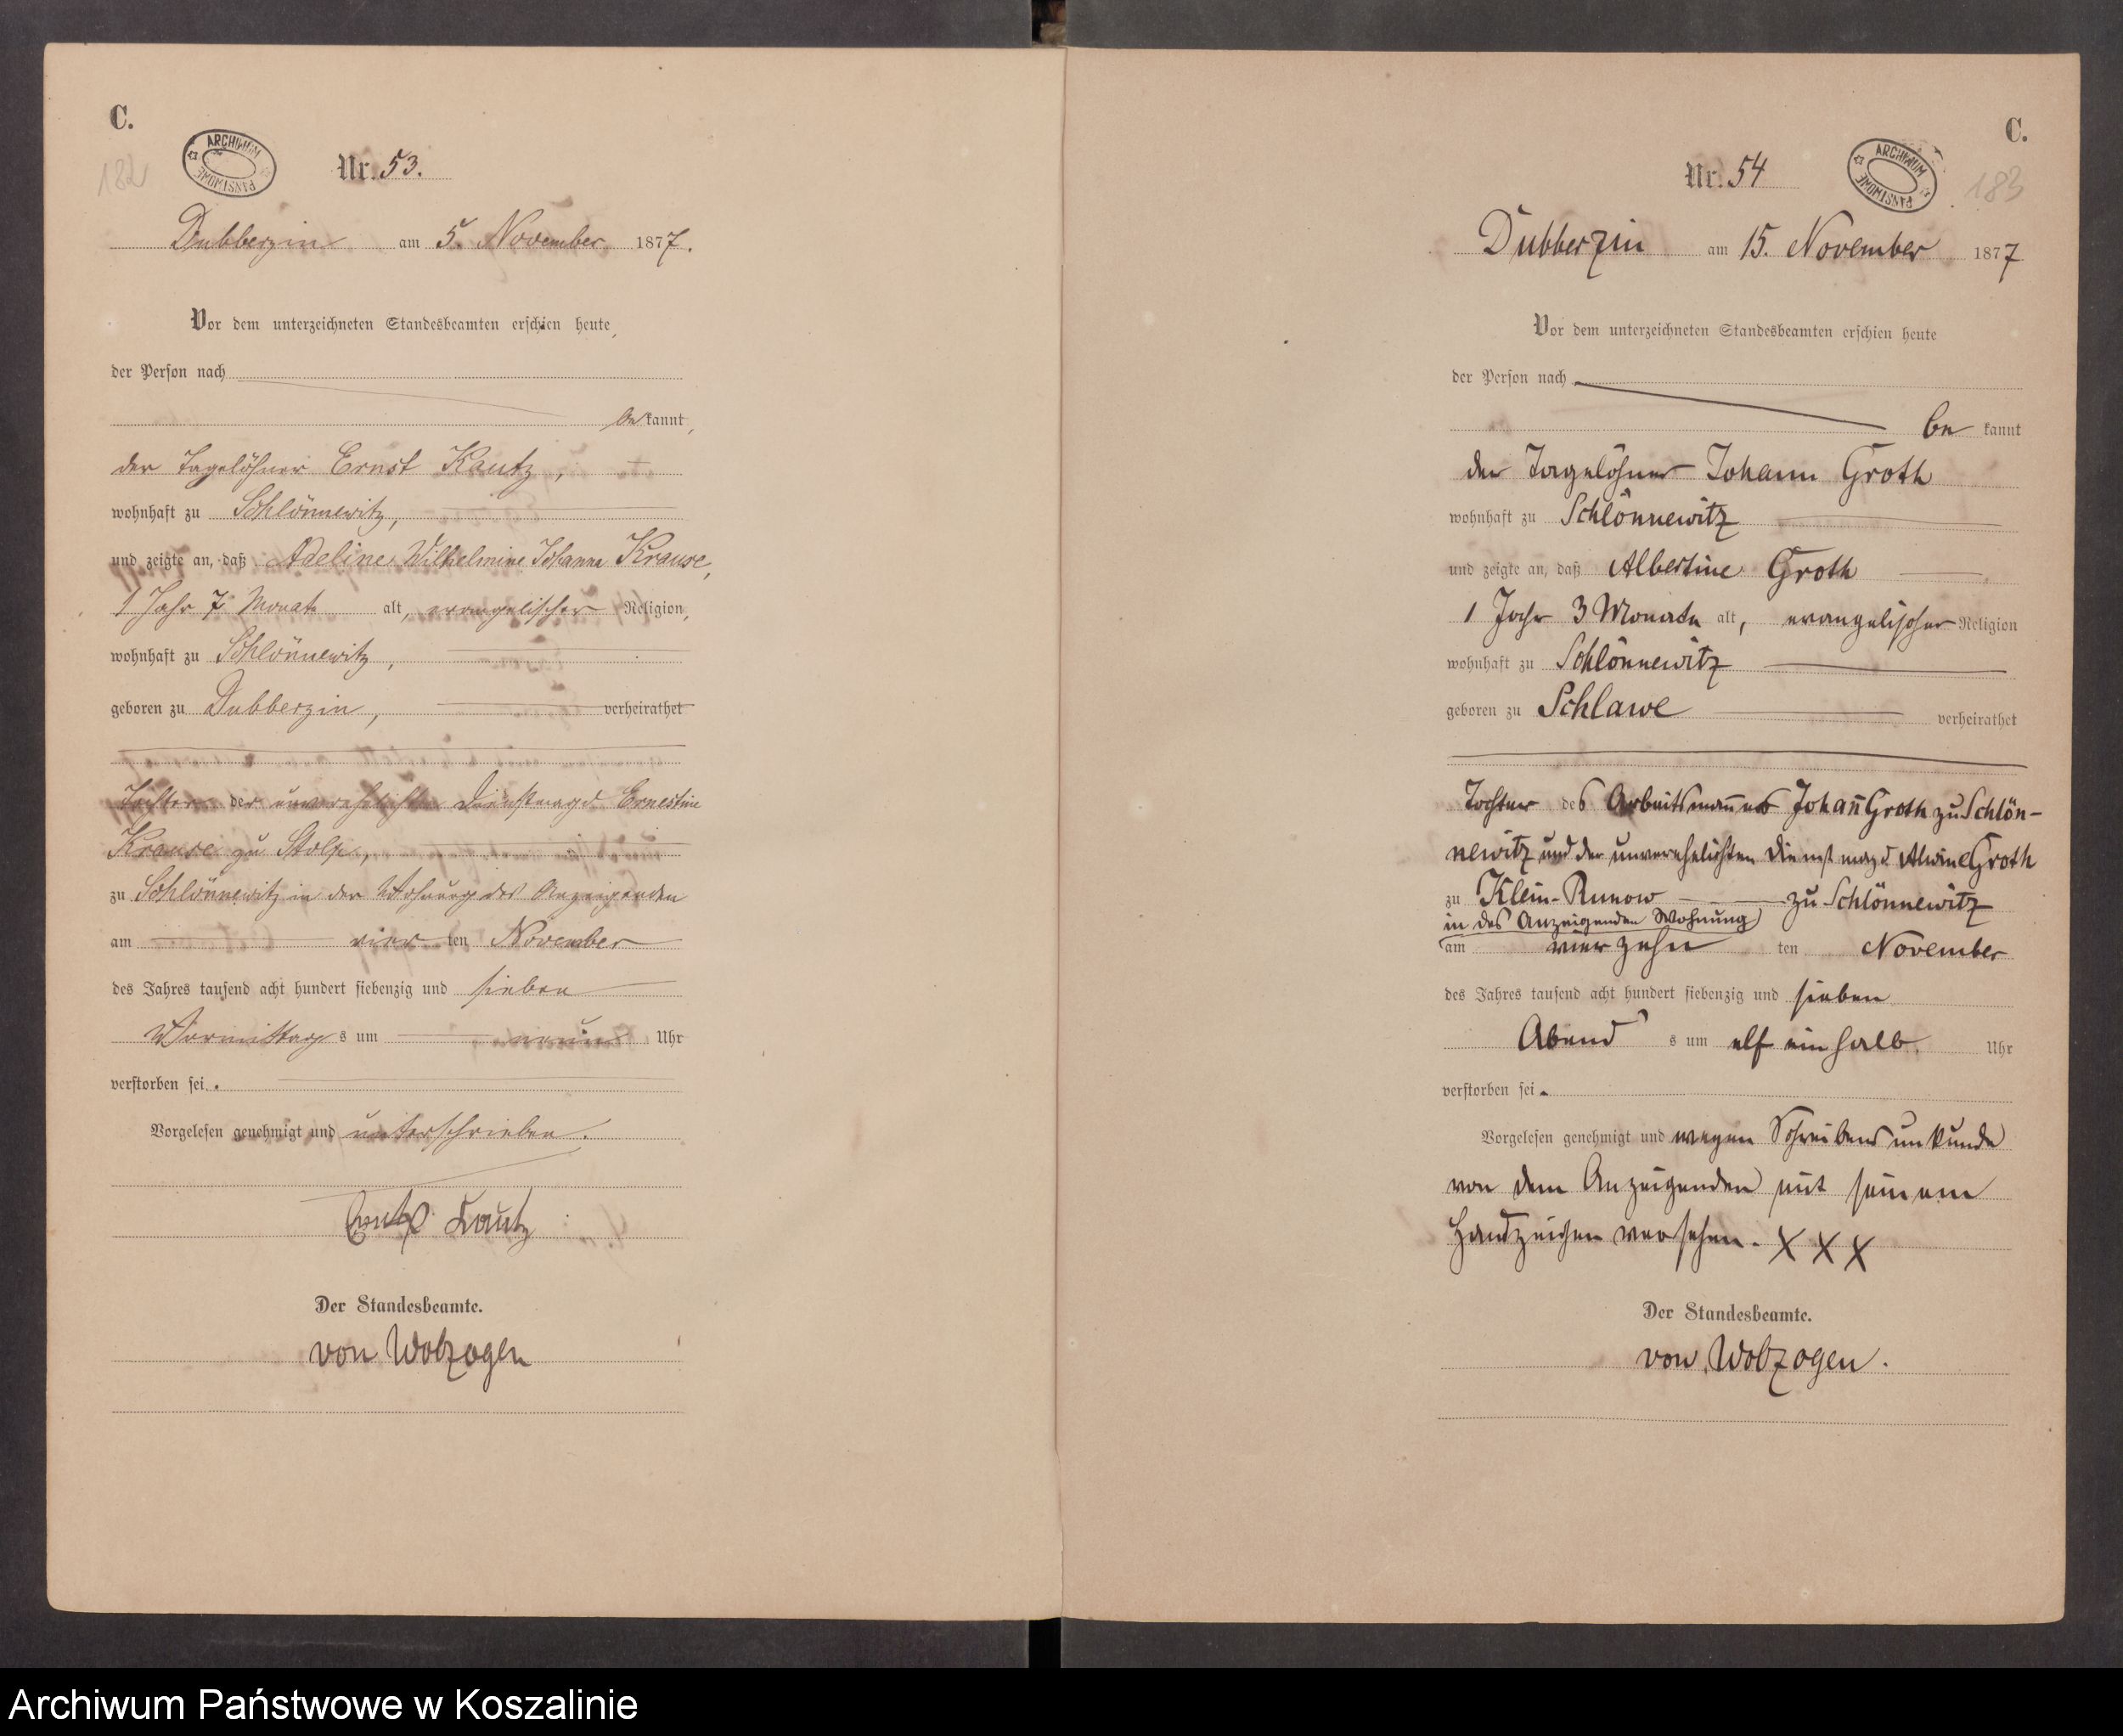 C.
182
ARCHIWUM PAŃSTWOWE
Nr. 53.
Dubberzin am 5. November 1877.
Vor dem unterzeichneten Standesbeamten erschien heute,
der Person nach
be kannt,
der Tagelöhner Ernst Kautz,
wohnhaft zu Schlönnewitz,
und zeigte an, daß Adeline Wilhelmine Johanna Krause,
1 Jahr 7 Monat alt, evangelischer Religion,
wohnhaft zu Schlönnewitz,
geboren zu Dubberzin, verheirathet
Tochter der unverehelichten Dienstmagd Ernestine
Krause zu Stolp,
zu Schlönnewitz in der Wohnung des Anzeigenden
am vier ten November
des Jahres tausend acht hundert siebenzig und sieben
Vormittag s um neun Uhr
verstorben sei.
Vorgelesen genehmigt und unterschrieben.
Ernst Kautz
Der Standesbeamte.
von Wobzogen
C.
183
ARCHIWUM PAŃSTWOWE
Nr. 54
Dubberzin am 15. November 1877
Vor dem unterzeichneten Standesbeamten erschien heute
der Person nach
be kannt
der Tagelöhner Johann Groth
wohnhaft zu Schlönnewitz
und zeigte an, daß Albertine Groth
1 Jahr 3 Monate alt, evangelischer Religion
wohnhaft zu Schlönnewitz
geboren zu Schlawe verheirathet
Tochter des Arbeitsmannes Johañ Groth zu Schlön-
newitz und der unverehelichten Dienstmagd Alwine Groth
zu Klein-Runow zu Schlönnewitz
in des Anzeigenden Wohnung
am vierzehn ten November
des Jahres tausend acht hundert siebenzig und sieben
Abend s um elf ein halb Uhr
verstorben sei.
Vorgelesen genehmigt und wegen Schreibensunkunde
von dem Anzeigenden mit seinem
Handzeichen versehen. X X X
Der Standesbeamte.
von Wobzogen.
Archiwum Państwowe w Koszalinie